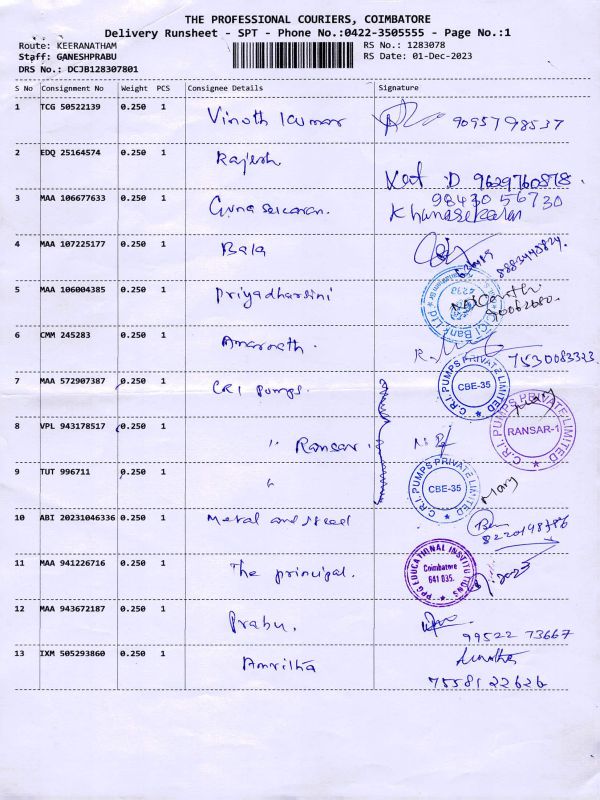 THE PROFESSIONAL COURIERS, COIMBATORE
Delivery Runsheet - SPT - Phone No.:0422-3505555 - Page No.:1
Route: KEERANATHAM RS No.: 1283078
Staff: GANESHPRABU RS Date: 01-Dec-2023
DRS No.: DCJB128307801
S No Consignment No Weight PCS Consignee Details Signature
1 TCG 50522139 0.250 1 Vinoth Kumar 9095798537
2 EDQ 25164574 0.250 1 Rajesh
Vat D 9629760878.
3 MAA 106677633 0.250 1 Guna Sekaran. 98430 56730
Khanasekaran
4 MAA 107225177 0.250 1 Bala
5 MAA 106004385 0.250 1 Priyadharsini
ICICI Bank Ltd
6 CMM 245283 0.250 1 Amarnath. 7530083323
7 MAA 572907387 0.250 1 CRI Pumps.
C.R.I. PUMPS PRIVATE LIMITED CBE-35
8 VPL 943178517 0.250 1 " Ransar.
C.R.I. PUMPS PRIVATE LIMITED RANSAR-1
9 TUT 996711 0.250 1 "
C.R.I. PUMPS PRIVATE LIMITED CBE-35 Mary
10 ABI 20231046336 0.250 1 Metal and Steel
8220198786
11 MAA 941226716 0.250 1 The principal.
PPG EDUCATIONAL INSTITUTIONS Coimbatore 641 035.
12 MAA 943672187 0.250 1 Prabu.
99522 73667
13 IXM 505293860 0.250 1 Amritha
75581 22626